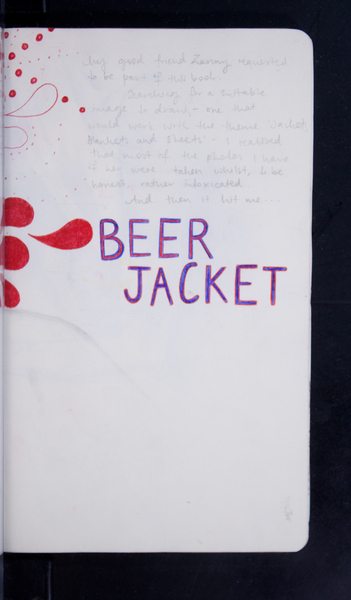 My good friend Lenny requested
to be part of this book.
Searching for a suitable
image to draw - one that
would work with the theme 'Jackets,
Blankets and Sheets' - I realised
that most of the photos I have
of her were taken whilst, to be
honest, rather intoxicated.
And then it hit me...
BEER
JACKET